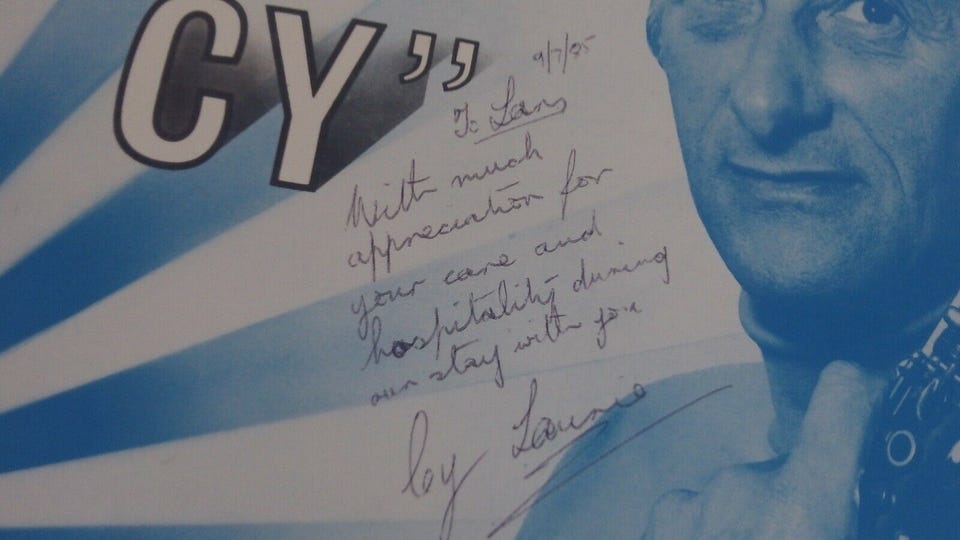 CY”
9/7/85
To Lars
With much
appreciation for
your care and
hospitality during
our stay with you
Cy Laurie